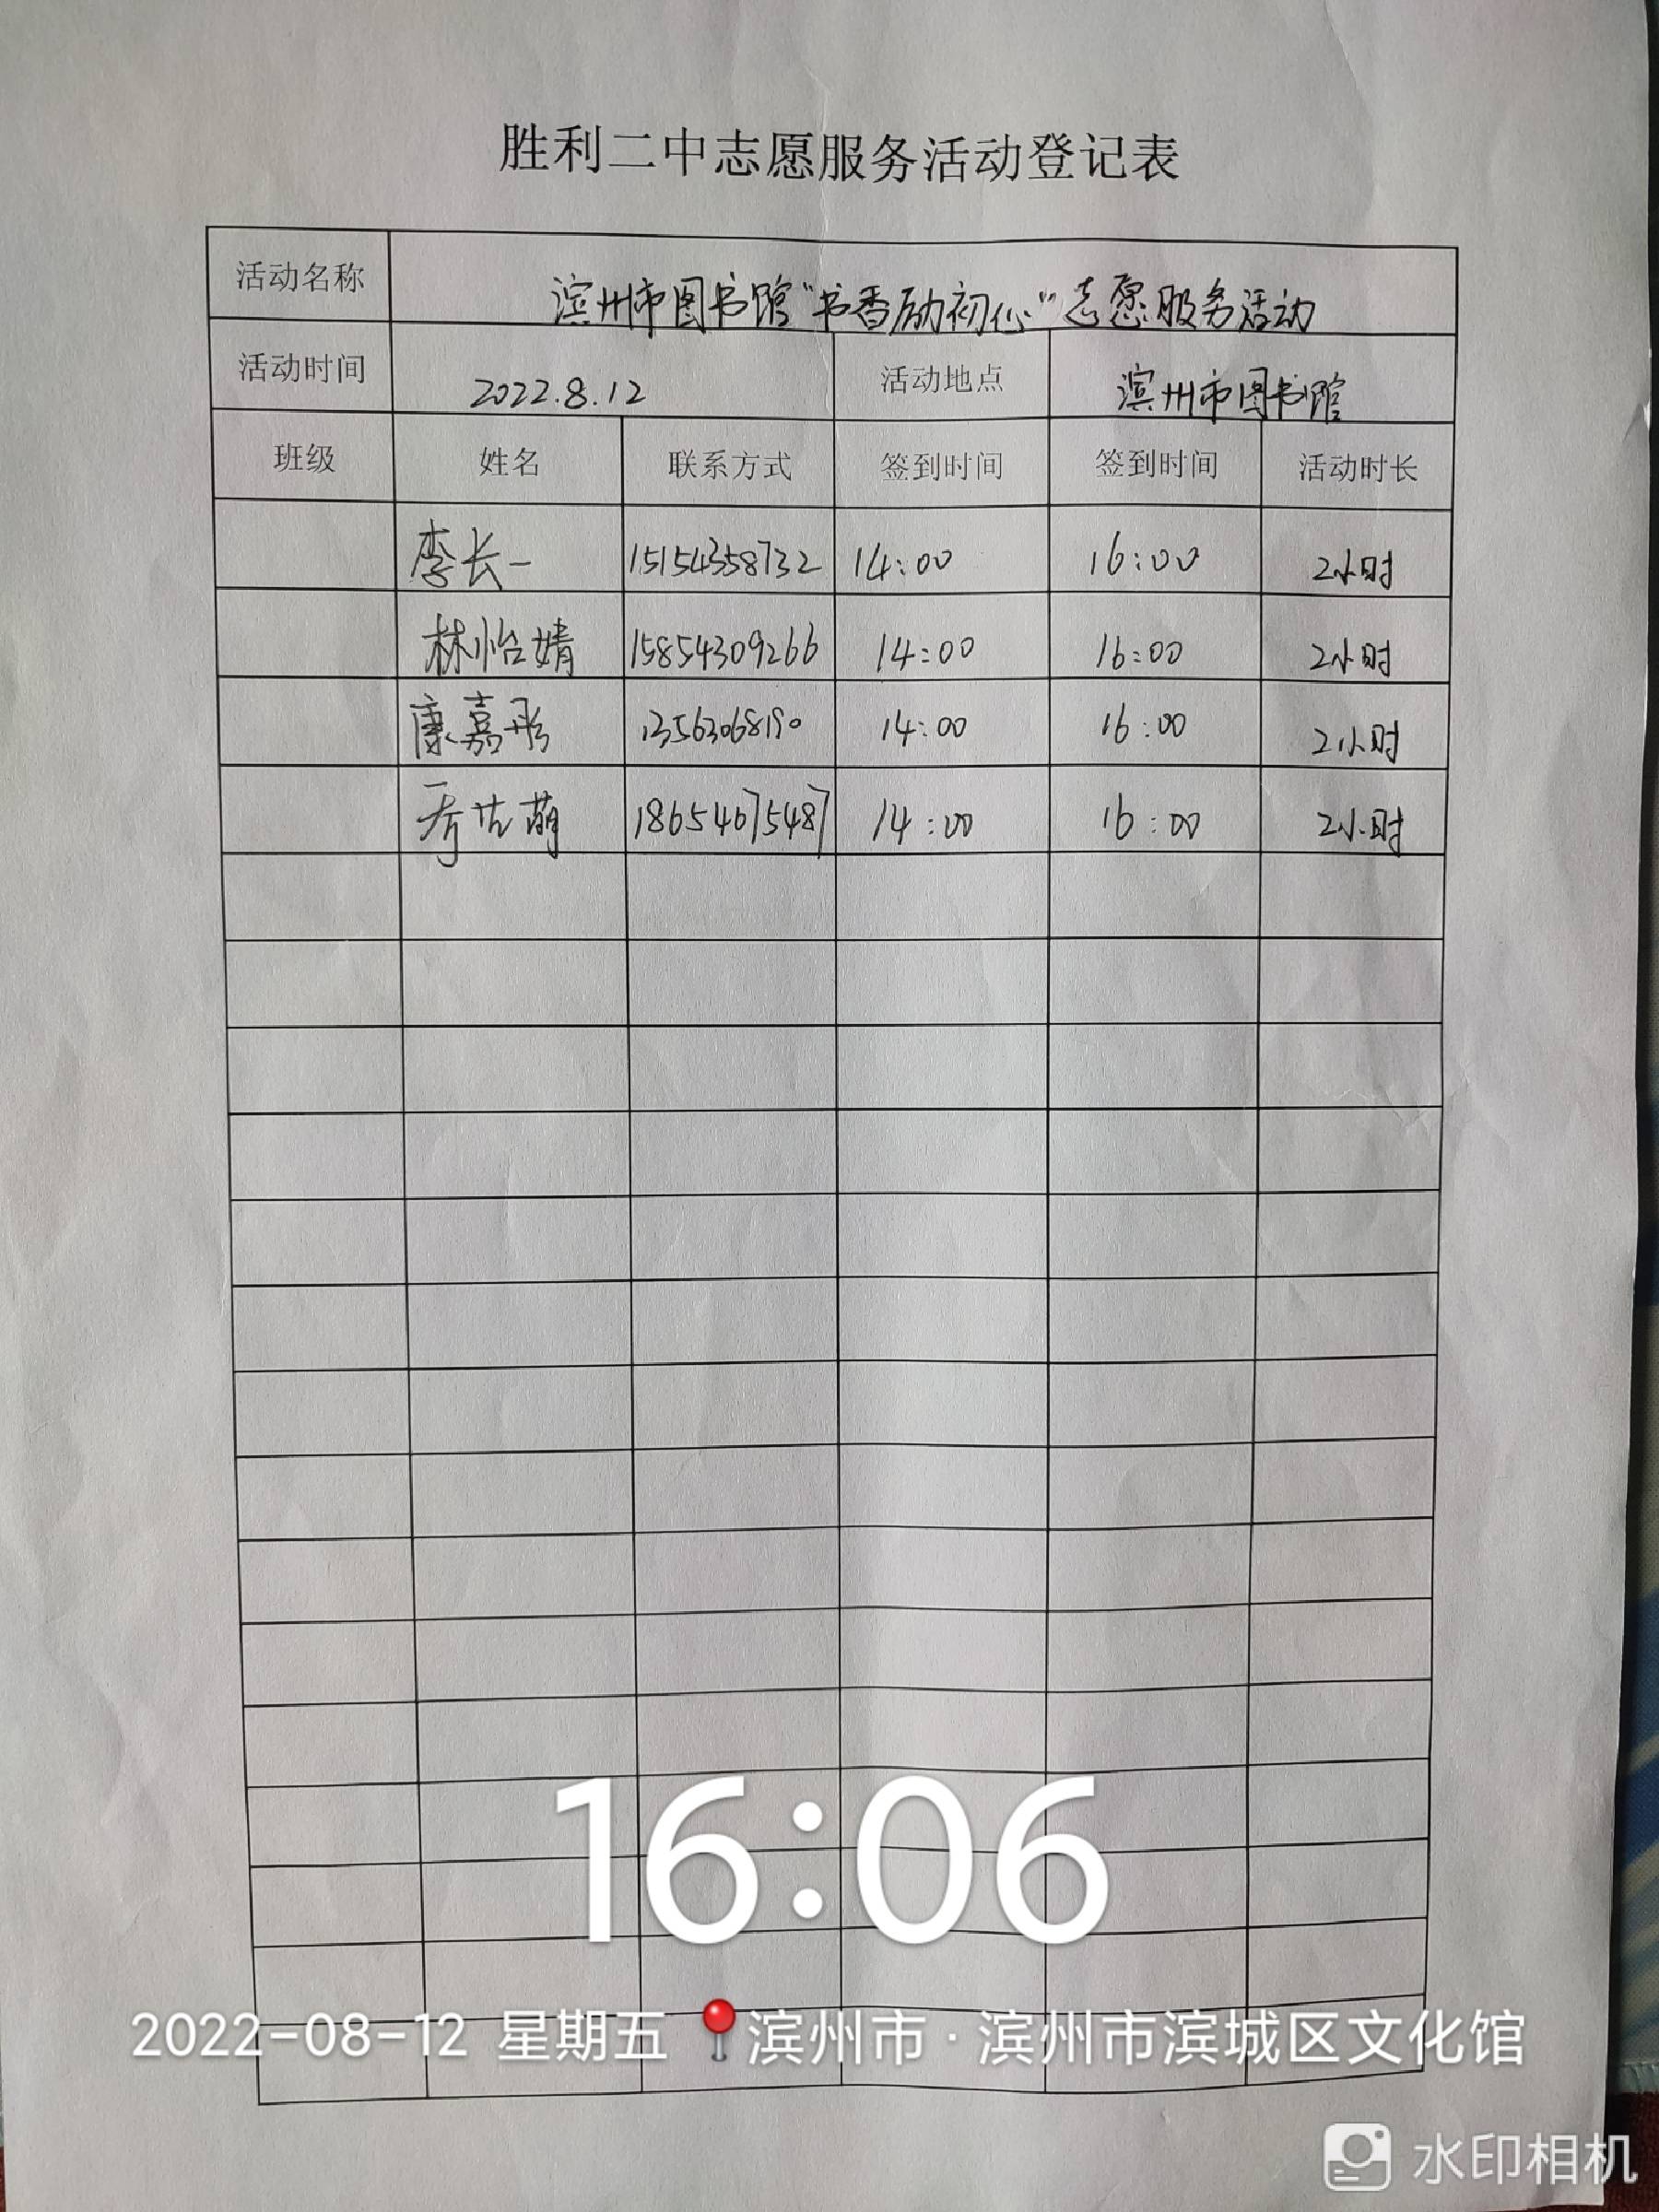 胜利二中志愿服务活动登记表
活动名称 滨州市图书馆“书香励初心”志愿服务活动
活动时间 2022.8.12 活动地点 滨州市图书馆
班级 姓名 联系方式 签到时间 签到时间 活动时长
李长一 15154358732 14:00 16:00 2小时
林怡婧 15854309266 14:00 16:00 2小时
康嘉彤 13563068190 14:00 16:00 2小时
18654675487 14:00 16:00 2小时
16:06
2022-08-12 星期五 滨州市·滨州市滨城区文化馆
水印相机